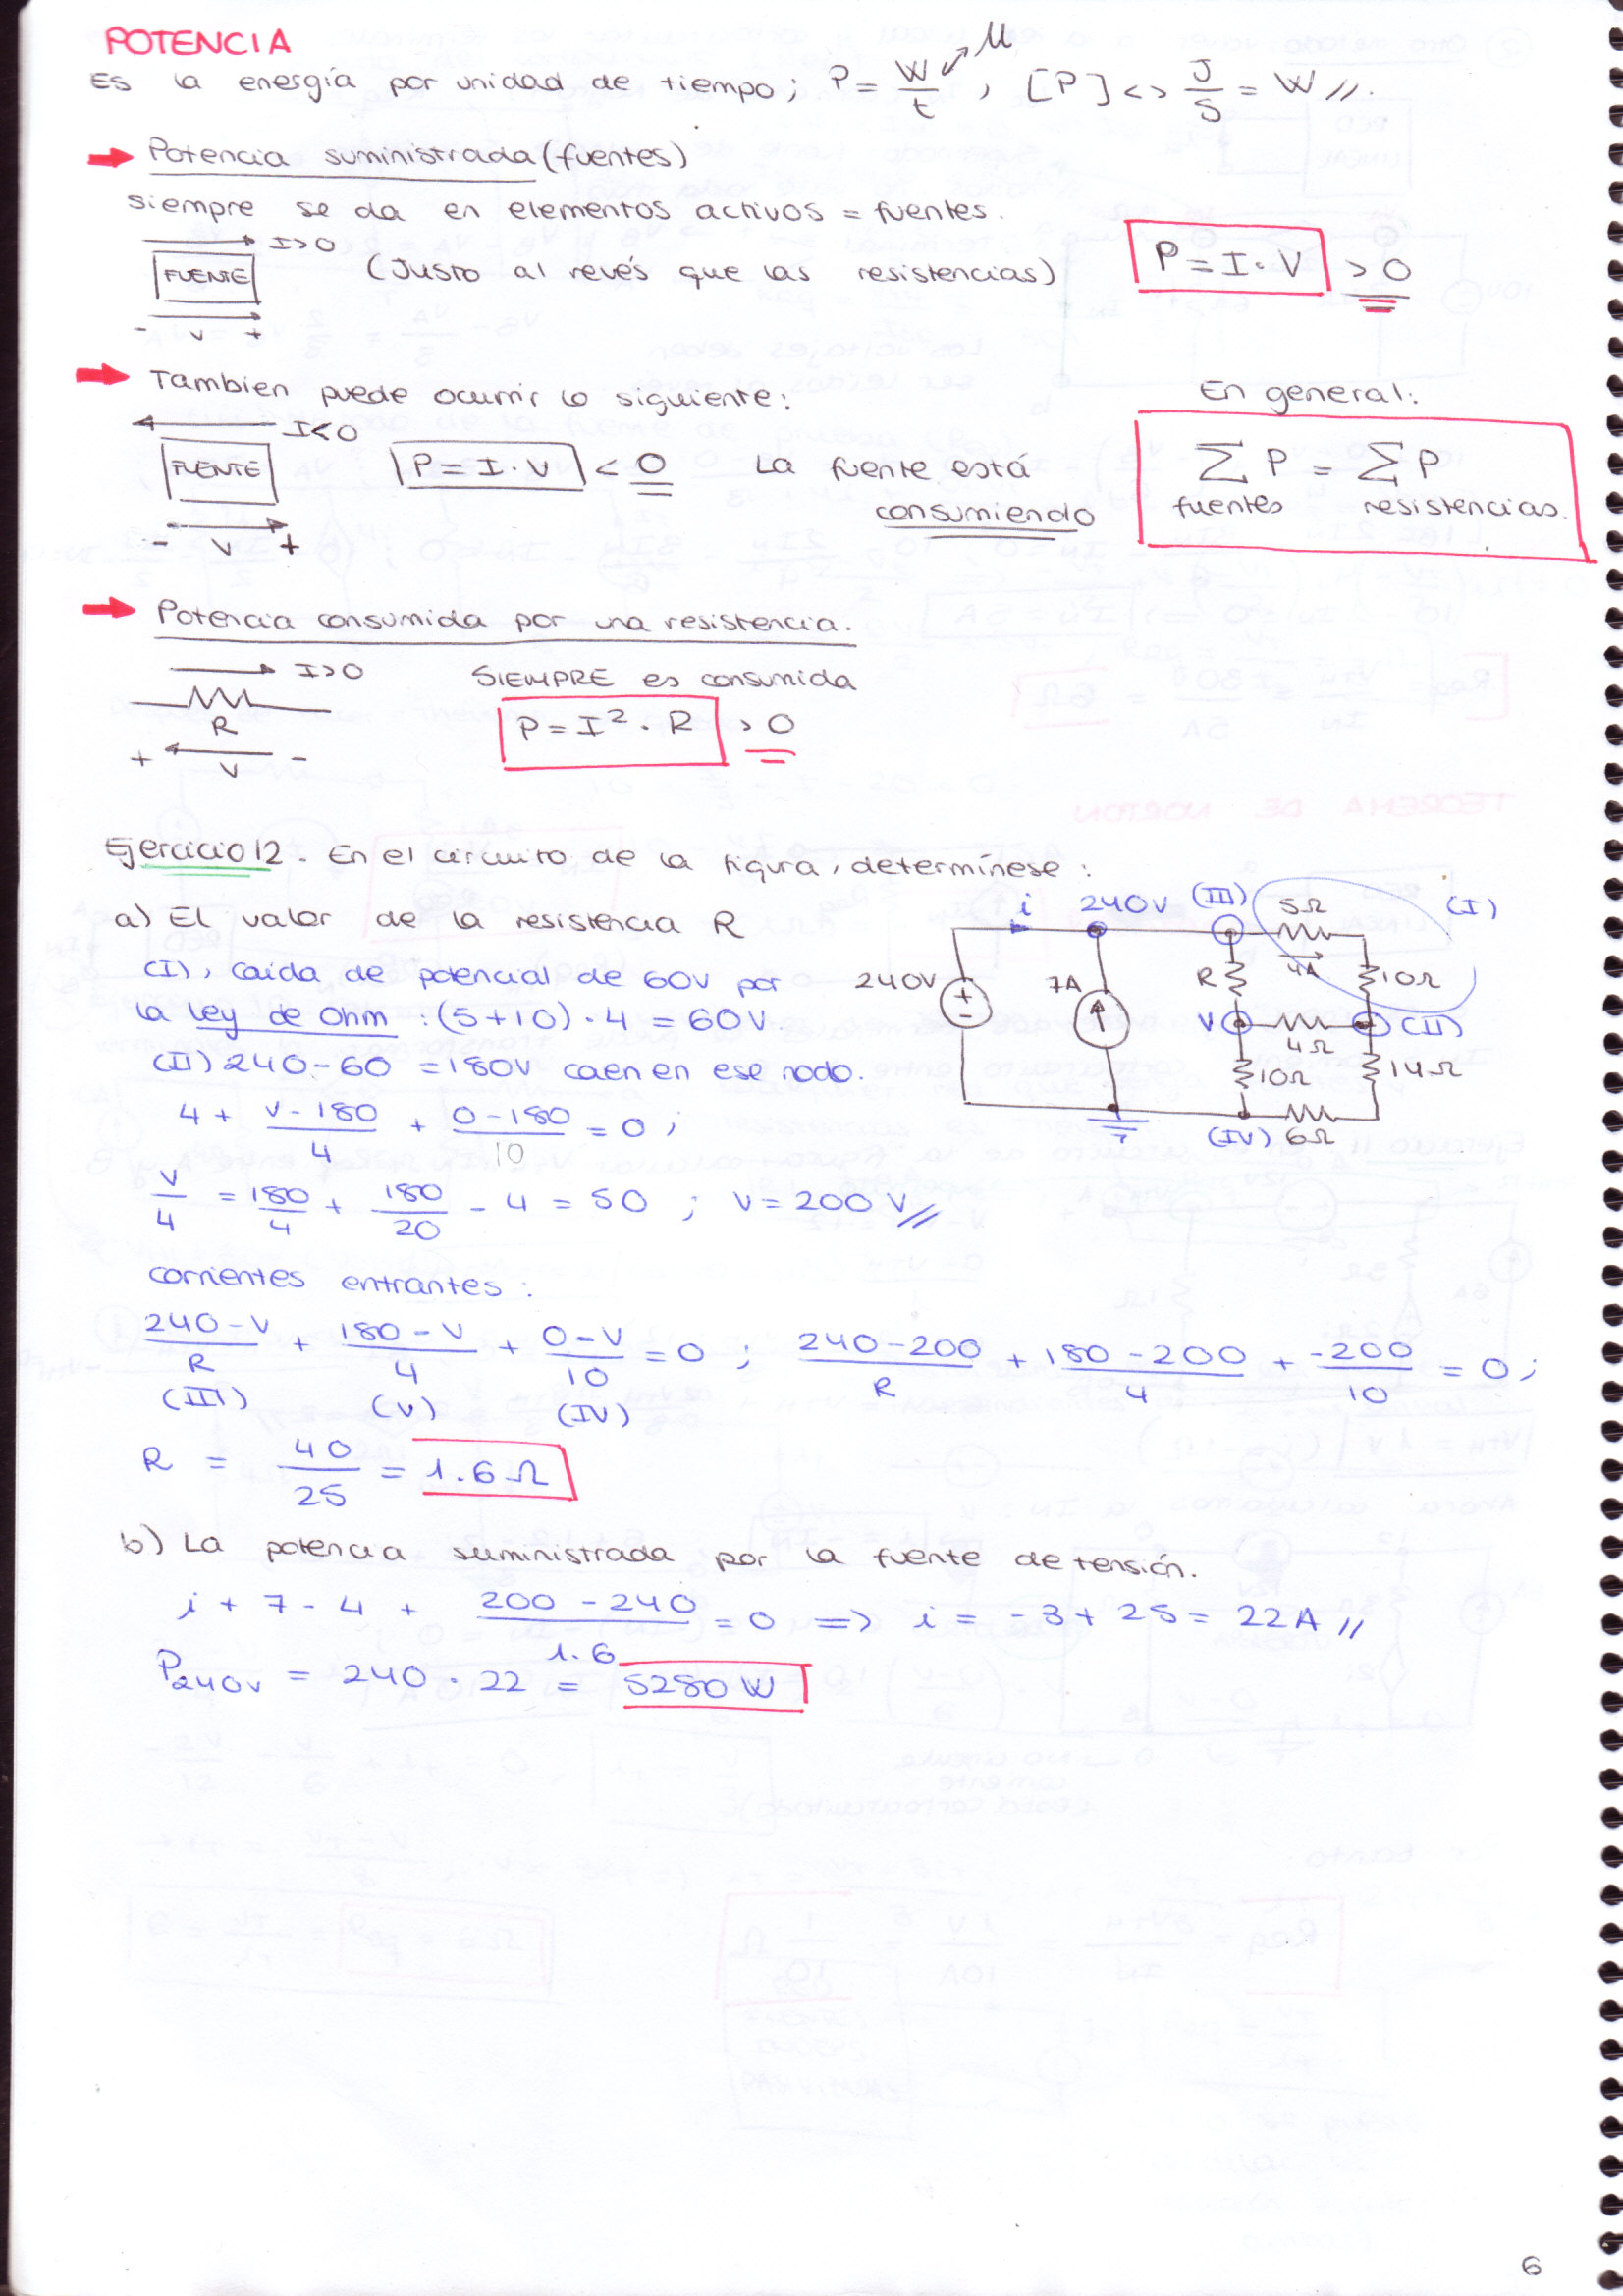 POTENCIA
Es la energía por unidad de tiempo; P = W/t , [P] <> J/S = W //.
→ Potencia suministrada (fuentes)
siempre se da en elementos activos = fuentes.
I>0
FUENTE
- V +
(Justo al revés que las resistencias)
P = I · V > 0
→ Tambien puede ocurrir lo siguiente:
I<0
FUENTE
- V +
P = I · V < 0
La fuente está
consumiendo
En general:
∑ P = ∑ P
fuentes resistencias.
→ Potencia consumida por una resistencia.
I>0
R
+ V -
SIEMPRE es consumida
P = I² · R > 0
Ejercicio 12. En el circuito de la figura, determínese:
a) El valor de la resistencia R
(I), caída de potencial de 60V por
la ley de Ohm: (5+10)·4 = 60V.
(II) 240-60 = 180V caen en ese nodo.
4 + (V-180)/4 + (0-180)/10 = 0 ;
V/4 = 180/4 + 180/20 - 4 = 50 ; V = 200 V//
i 240V (III) 5Ω (I)
240V + - 7A R 4A 10Ω
V 4Ω (II)
10Ω 14Ω
(IV) 6Ω
corrientes entrantes:
(240-V)/R + (180-V)/4 + (0-V)/10 = 0 ; (240-200)/R + (180-200)/4 + (-200)/10 = 0 ;
(III) (V) (IV)
R = 40/25 = 1.6 Ω
b) La potencia suministrada por la fuente de tensión.
i + 7 - 4 + (200-240)/1.6 = 0 => i = -3 + 25 = 22A //
P240V = 240 · 22 = 5280 W
6